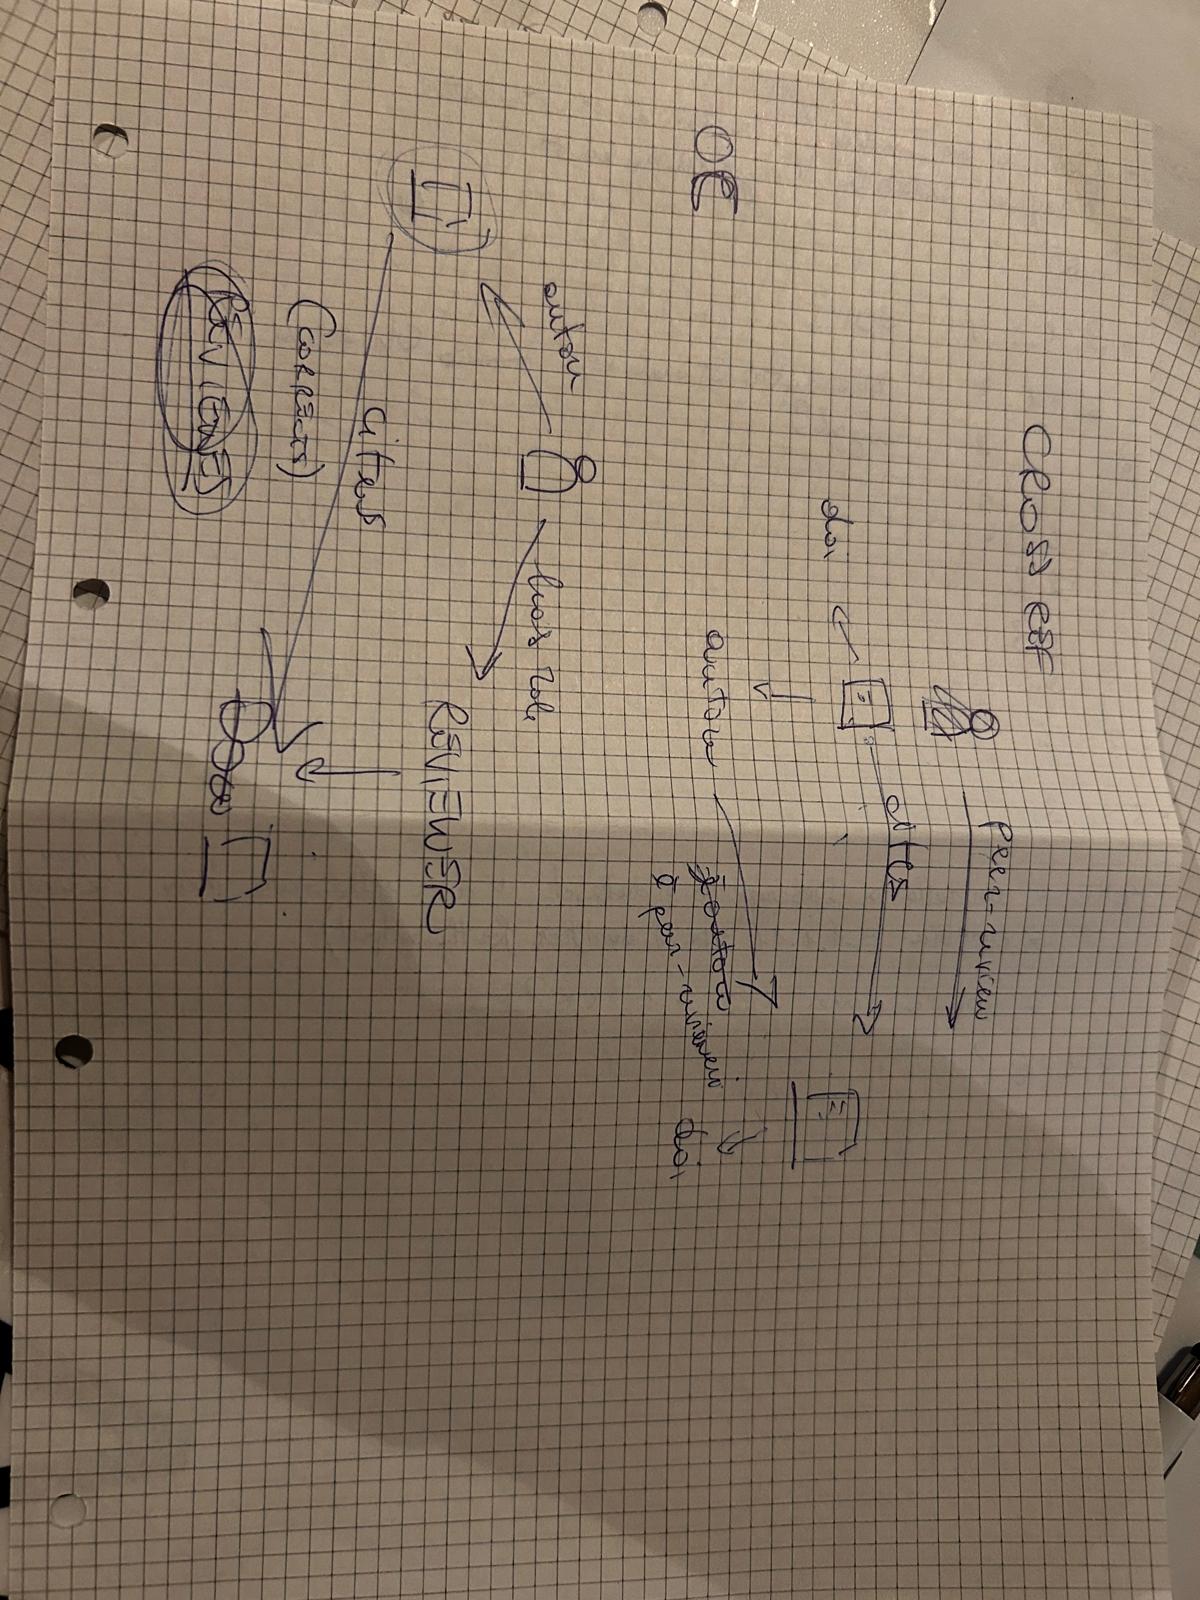 CROSS REF
peer-review
cites
doi
autore
è autore
è peer-reviewer
doi
OC
autore
has role
REVIEWER
cites
(CORRECTS)
REVIEWES